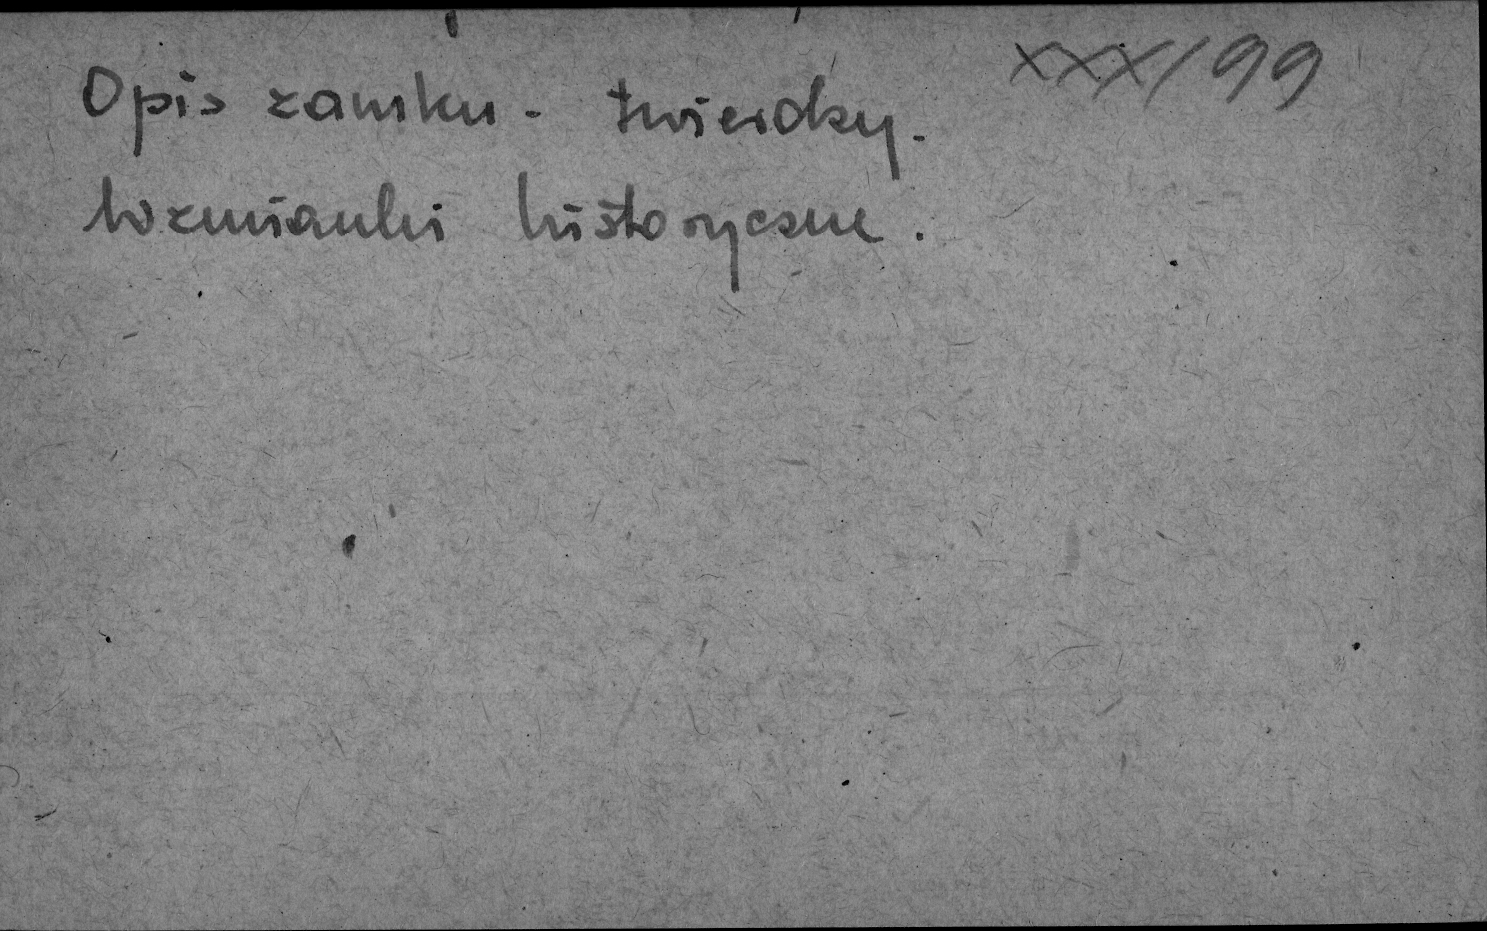 XXX/99
Opis zamku - twierdzy.
Wzmianki historyczne.